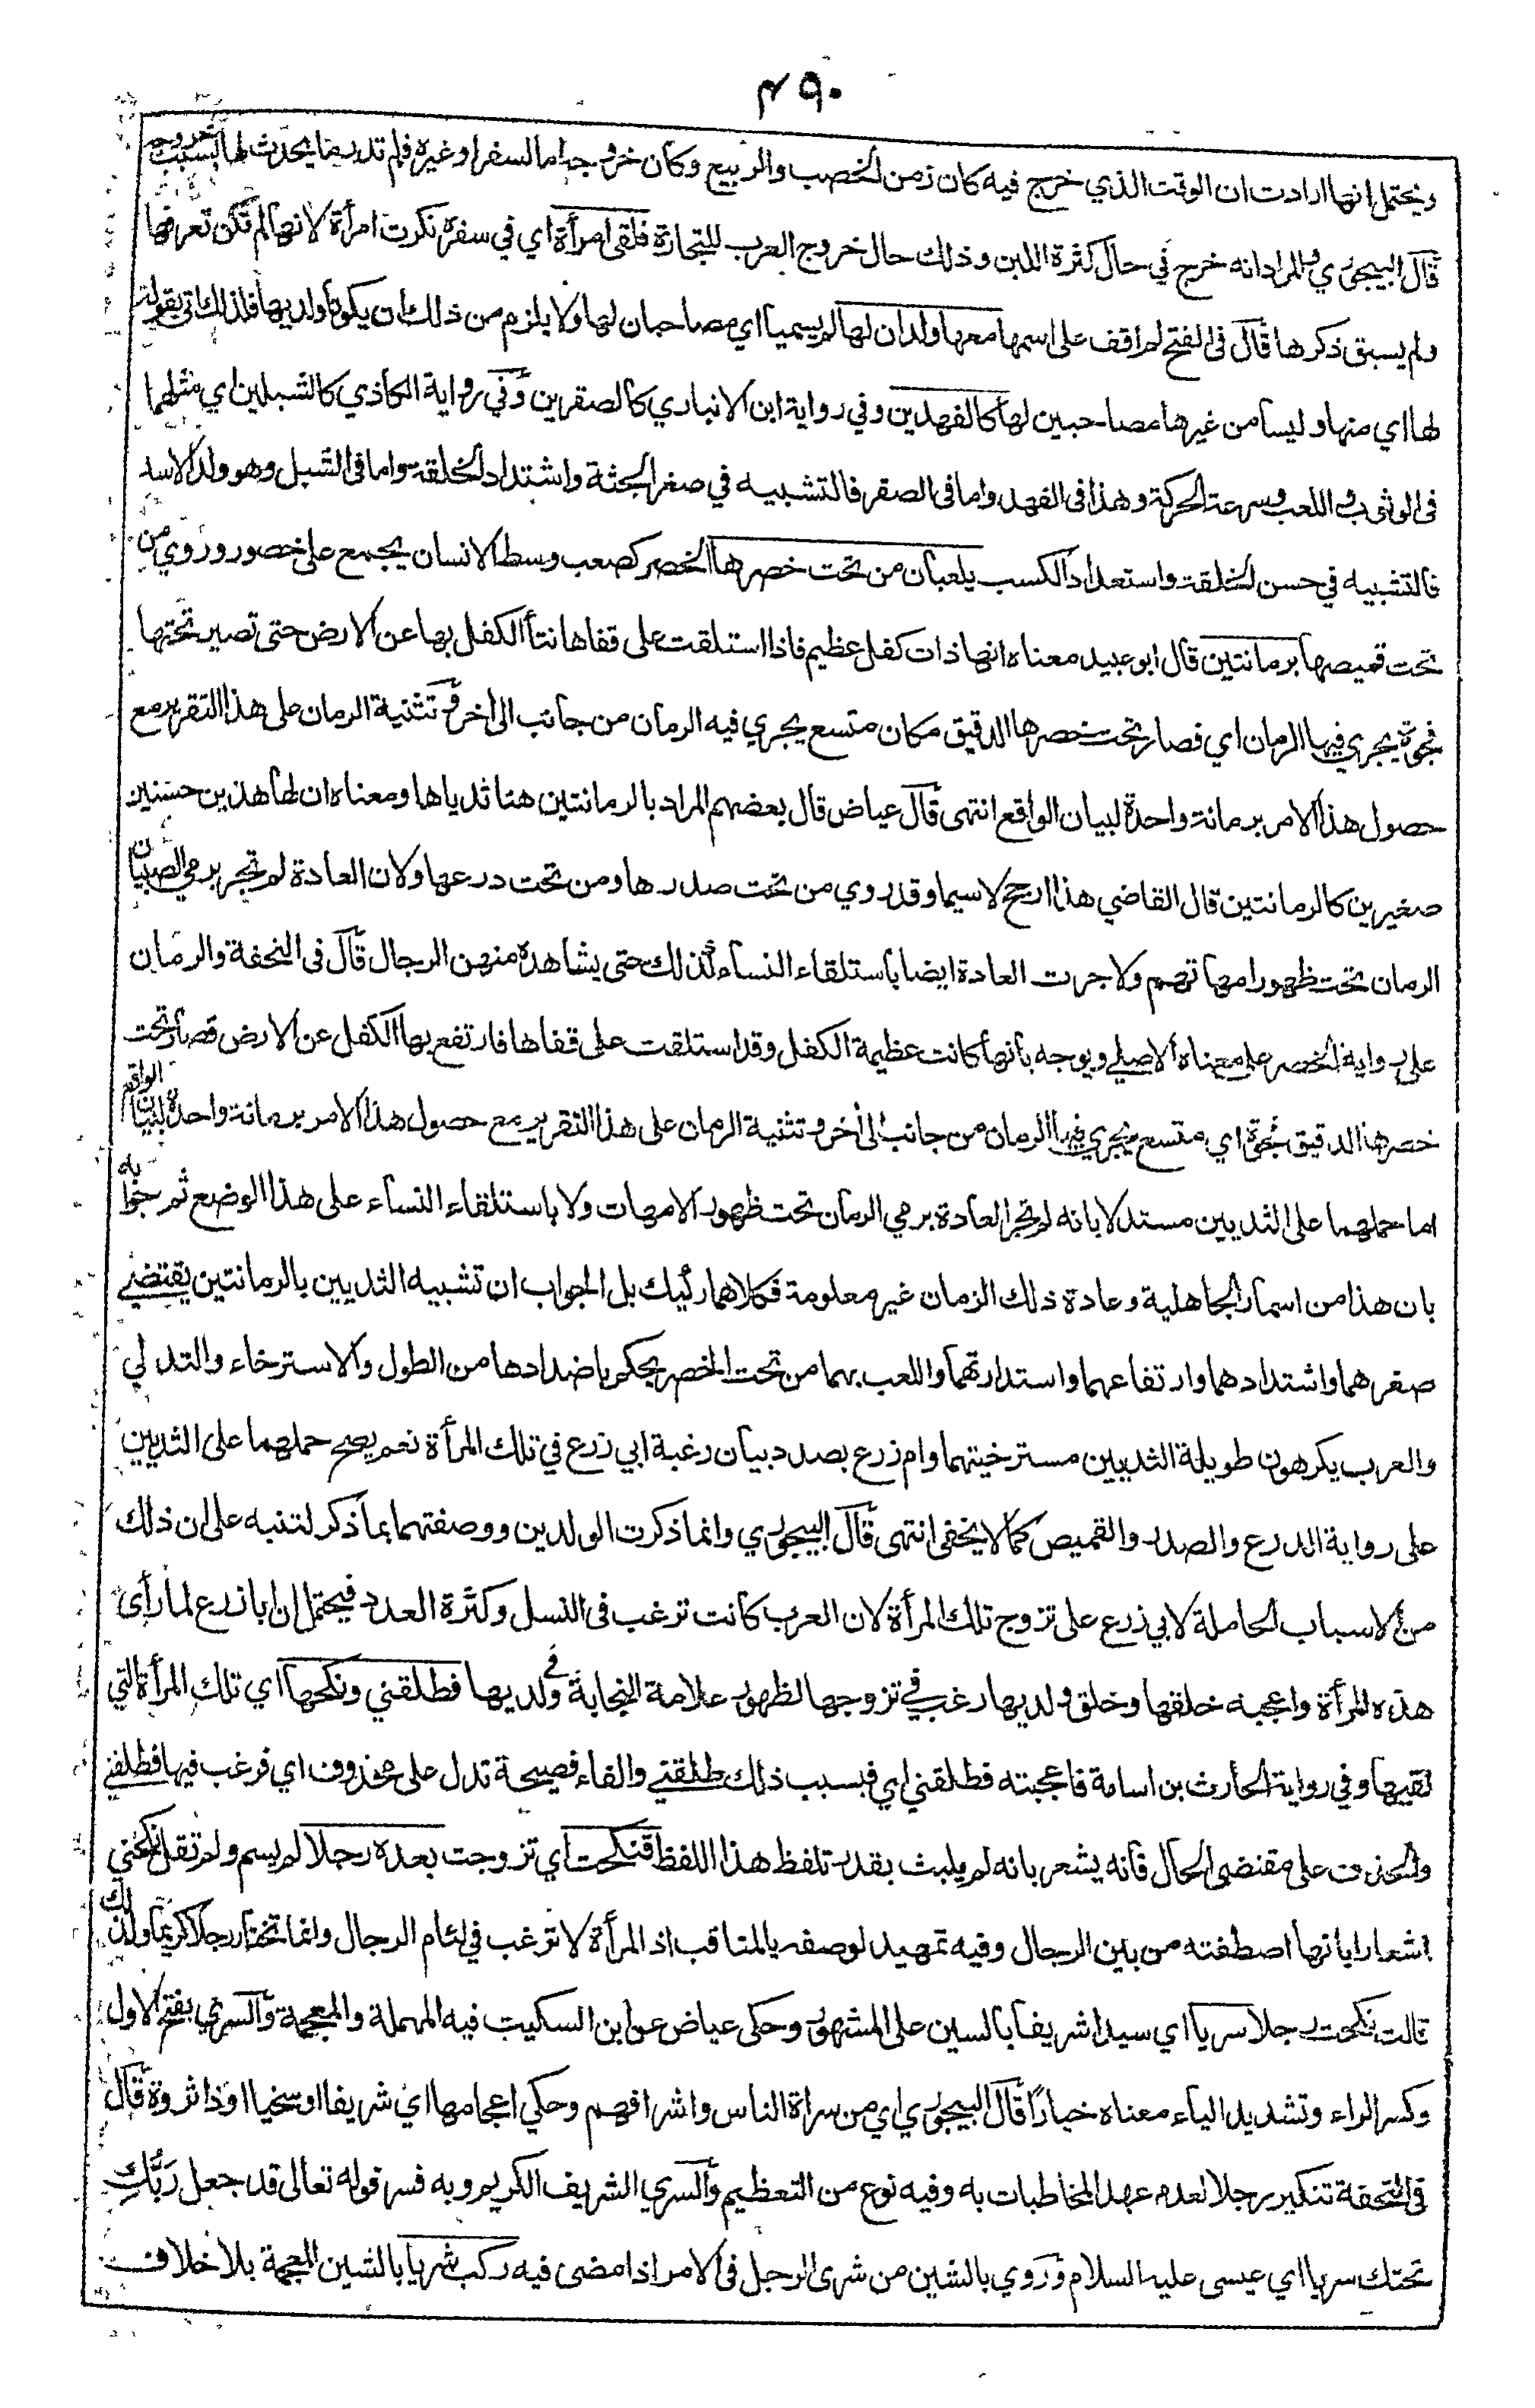 ٤٩٠
ويحتمل انها ارادت ان الوقت الذي خرج فيه كان زمن الخصب والربيع وكان خروجه اما لسفر او غيره فلم تدر ما يحدث لها بسبب خروجه
قال البيجوري والمراد انه خرج في حال كثرة اللبن وذلك حال خروج العرب للتجارة فلقى امرأة اي في سفره نكرت امرأة لانها لم تكن تعرفها
ولم يسبق ذكرها قال فى الفتح لم اقف على اسمها معها ولدان لها لم يسميا اي مصاحبان لها ولا يلزم من ذلك ان يكونا ولديها فلذلك اتى بقوله
لها اي منها وليسا من غيرها مصاحبين لها كالفهدين وفي رواية ابن الانباري كالصقرين وفي رواية الكاذي كالشبلين اي مثلهما
فى الوثوب واللعب وسرعة الحركة وهذا فى الفهد واما فى الصقر فالتشبيه في صغر الجثة واشتداد الخلقة واما فى الشبل وهو ولد الاسد
فالتشبيه في حسن الخلقة واستعداد الكسب يلعبان من تحت خصرها الخصر كصعب وسط الانسان يجمع على خصور وروي من
تحت قميصها برمانتين قال ابو عبيد معناه انها ذات كفل عظيم فاذا استلقت على قفاها نتأ الكفل بها عن الارض حتى تصير تحتها
فجوة يجري فيها الرمان اي فصار تحت خصرها الدقيق مكان متسع يجري فيه الرمان من جانب الى اخر وتثنية الرمان على هذا التقرير مع
حصول هذا الامر برمانة واحدة لبيان الواقع انتهى قال عياض قال بعضهم المراد بالرمانتين هنا ثدياها ومعناه ان لها هذين حسنين
صغيرين كالرمانتين قال القاضي هذا ارجح لا سيما وقد روي من تحت صدرها ومن تحت درعها ولان العادة لم تجر برمي الصبيان
الرمان تحت ظهور امهاتهم ولا جرت العادة ايضا باستلقاء النساء كذلك حتى يشاهده منهن الرجال قال فى التحفة والرمان
على رواية الخصر على معناه الاصلي ويوجه بانها كانت عظيمة الكفل وقد استلقت على قفاها فارتفع بها الكفل عن الارض فصار تحت
خصرها الدقيق فجوة اي متسع يجري فيها الرمان من جانب الى اخر وتثنية الرمان على هذا التقرير مع حصول هذا الامر برمانة واحدة لبيان الواقع
اما حملهما على الثديين مستدلا بانه لم تجر العادة برمي الرمان تحت ظهور الامهات ولا باستلقاء النساء على هذا الوضع ثم جوابه
بان هذا من اسمار الجاهلية وعادة ذلك الزمان غير معلومة فكلاهما ركيك بل الجواب ان تشبيه الثديين بالرمانتين يقتضي
صغرهما واشتدادهما وارتفاعهما واستدارتهما واللعب بهما من تحت الخصر يحكم باضدادها من الطول والاسترخاء والتدلي
والعرب يكرهون طويلة الثديين مسترخيتهما وام زرع بصدد بيان رغبة ابي زرع في تلك المرأة نعم يصح حملهما على الثديين
على رواية الدرع والصدر والقميص كما لا يخفى انتهى قال البيجوري وانما ذكرت الولدين ووصفتهما بما ذكر لتنبه على ان ذلك
من الاسباب الحاملة لابي زرع على تزوج تلك المرأة لان العرب كانت ترغب فى النسل وكثرة العدد فيحتمل ان ابا زرع لما رأى
هذه المرأة واعجبه خلقها وخلق ولديها رغب في تزوجها لظهور علامة النجابة في ولديها فطلقني ونكحها اي تلك المرأة التي
لقيها وفي رواية الحارث بن اسامة فاعجبته فطلقني اي فبسبب ذلك طلقني والفاء فصيحة تدل على محذوف اي فرغب فيها فطلقني
والمحذوف على مقتضى الحال فانه يشعر بانه لم يلبث بقدر تلفظ هذا اللفظ فنكحت اي تزوجت بعده رجلا لم يسم ولم تقل نكحني
اشعارا بانها اصطفته من بين الرجال وفيه تمهيد لوصفه بالمناقب اذ المرأة لا ترغب في لئام الرجال وانما تختار رجلا كريما ولذلك
قالت نكحت رجلا سريا اي سيدا شريفا بالسين على المشهور وحكى عياض عن ابن السكيت فيه المهملة والمعجمة والسري بفتح الاول
وكسر الراء وتشديد الياء معناه خيارًا قال البيجوري اي من سراة الناس واشرافهم وحكي اعجامها اي شريفا او سخيا او ذا ثروة قال
فى التحفة تنكير رجلا لعدم عهد المخاطبات به وفيه نوع من التعظيم والسري الشريف الكريم وبه فسر قوله تعالى قد جعل رَبُّكِ
تحتك سريا اي عيسى عليه السلام وروي بالشين من شرى الرجل فى الامر اذا مضى فيه ركب شريا بالشين المعجمة بلا خلاف